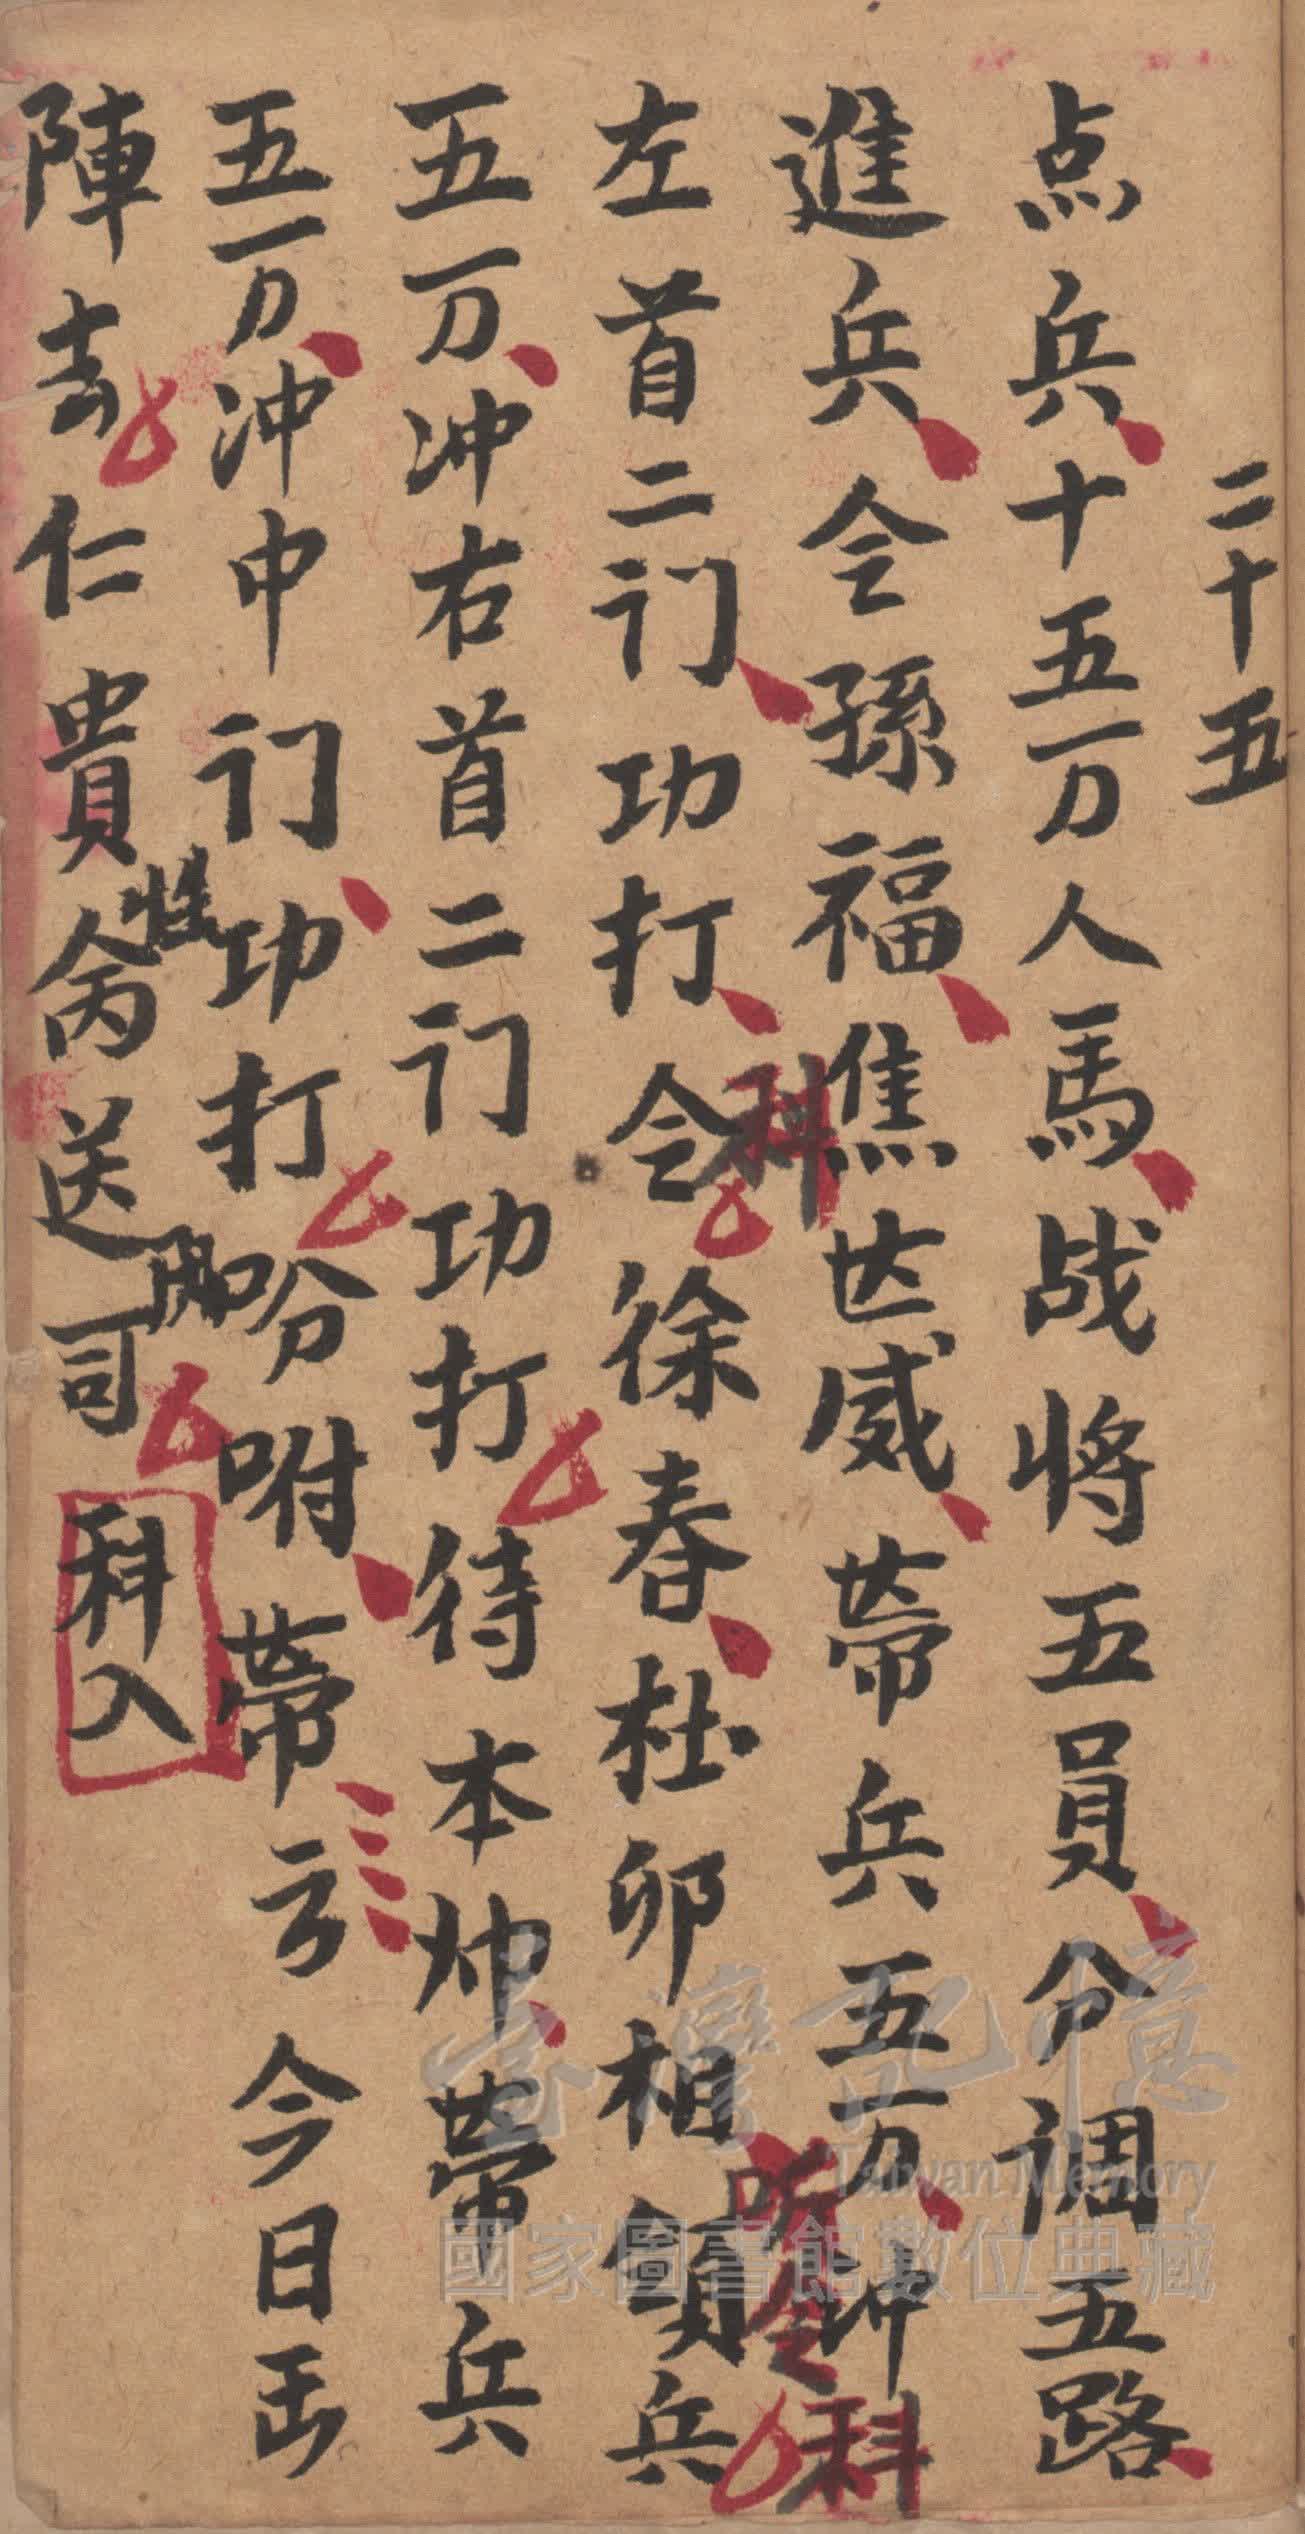 二十五
点兵十五万人馬战将五員分调五路
進兵令孫福焦世威帶兵五万冲
左首二门功打令徐春杜卯相領兵
科
听令
科
五万冲右首二门功打待本帅帶兵
五万冲中门功打吩咐帶
今日
陣去仁貴送司
科入
Taiwan Memory
臺灣記憶
國家圖書館數位典藏